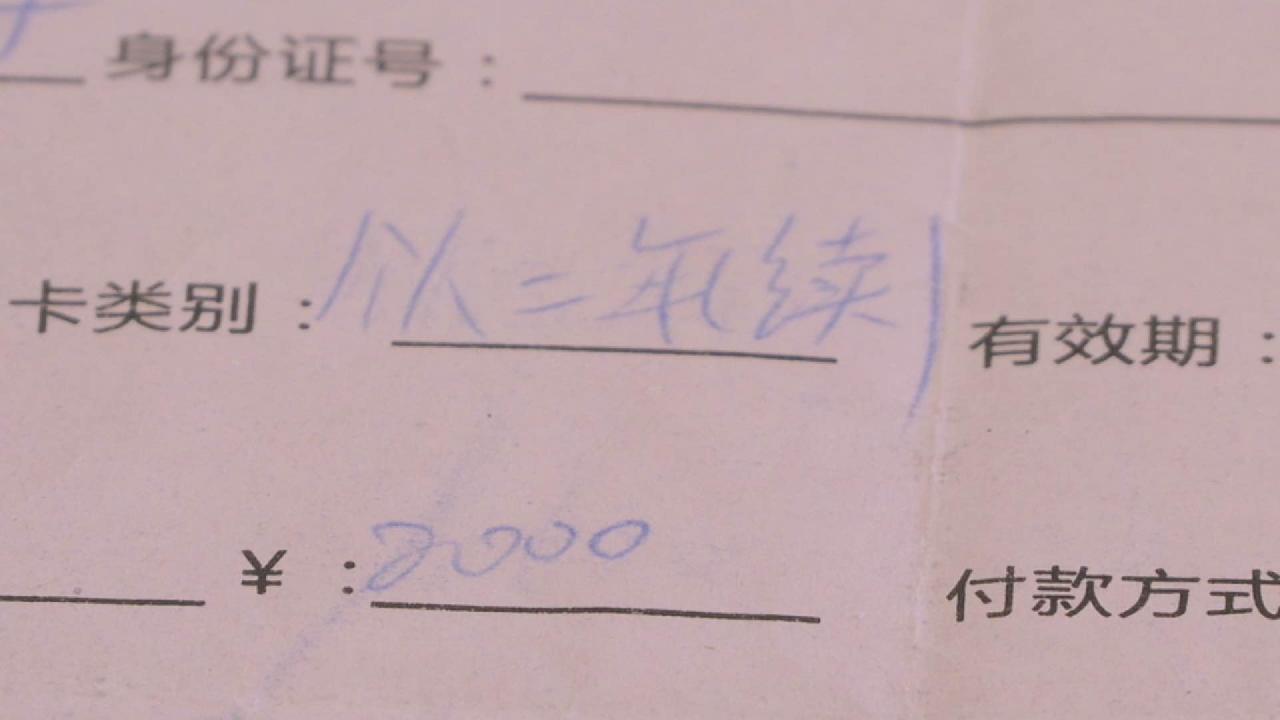 身份证号：
卡类别：二年续) 有效期：
¥：2000 付款方式